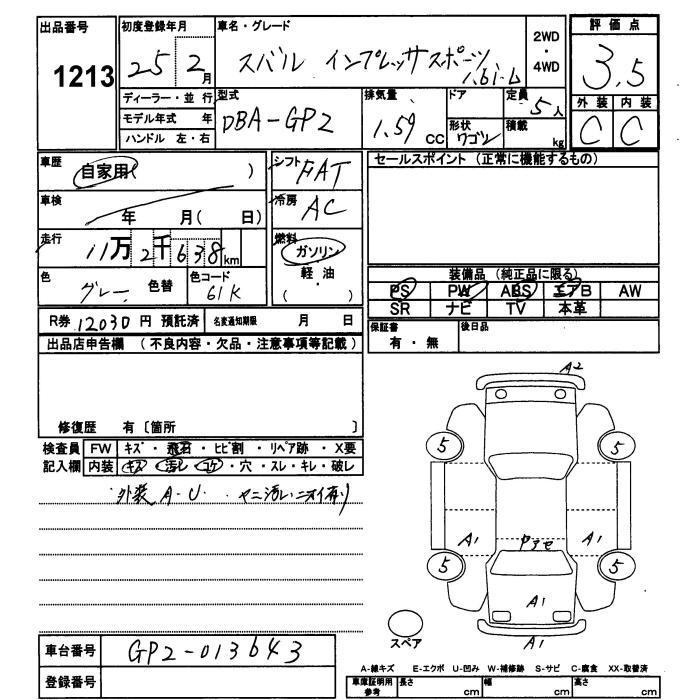 出品番号 初度登録年月 車名・グレード 評価点
1213 25 2月 スバル インプレッサスポーツ 2WD・4WD 3.5
1.6i-L
ディーラー・並行 型式 排気量 ドア 定員 5人 外装 内装
モデル年式 年 DBA-GP2 1.59 CC 形状 ワゴン 積載 kg C C
ハンドル 左・右
車歴 自家用( ) シフト FAT セールスポイント (正常に機能するもの)
車検 年 月( 日) 冷房 AC
走行 11万2千638km 燃料 ガソリン
軽・油
( )
色 グレー 色替 色コード 61K
装備品 (純正品に限る)
PS PW ABS エアB AW
SR ナビ TV 本革
R券 12030円 預託済 名変通知期限 月 日 保証書 後日品
有・無
出品店申告欄 (不良内容・欠品・注意事項等記載)
修復歴 有〔箇所 〕
検査員 FW キズ・飛石・ヒビ割・リペア跡・X要
記入欄 内装 キズ・汚レ・コゲ・穴・スレ・キレ・破レ
外装 A-U. ヤニ汚レニオイ有り
A2
5 5
A1 A1
5 5
A1
スペア A1
車台番号 GP2-013643
登録番号
A-線キズ E-エクボ U-凹み W-補修跡 S-サビ C-腐食 XX-取替済
車庫証明用参考 長さ cm 幅 cm 高さ cm